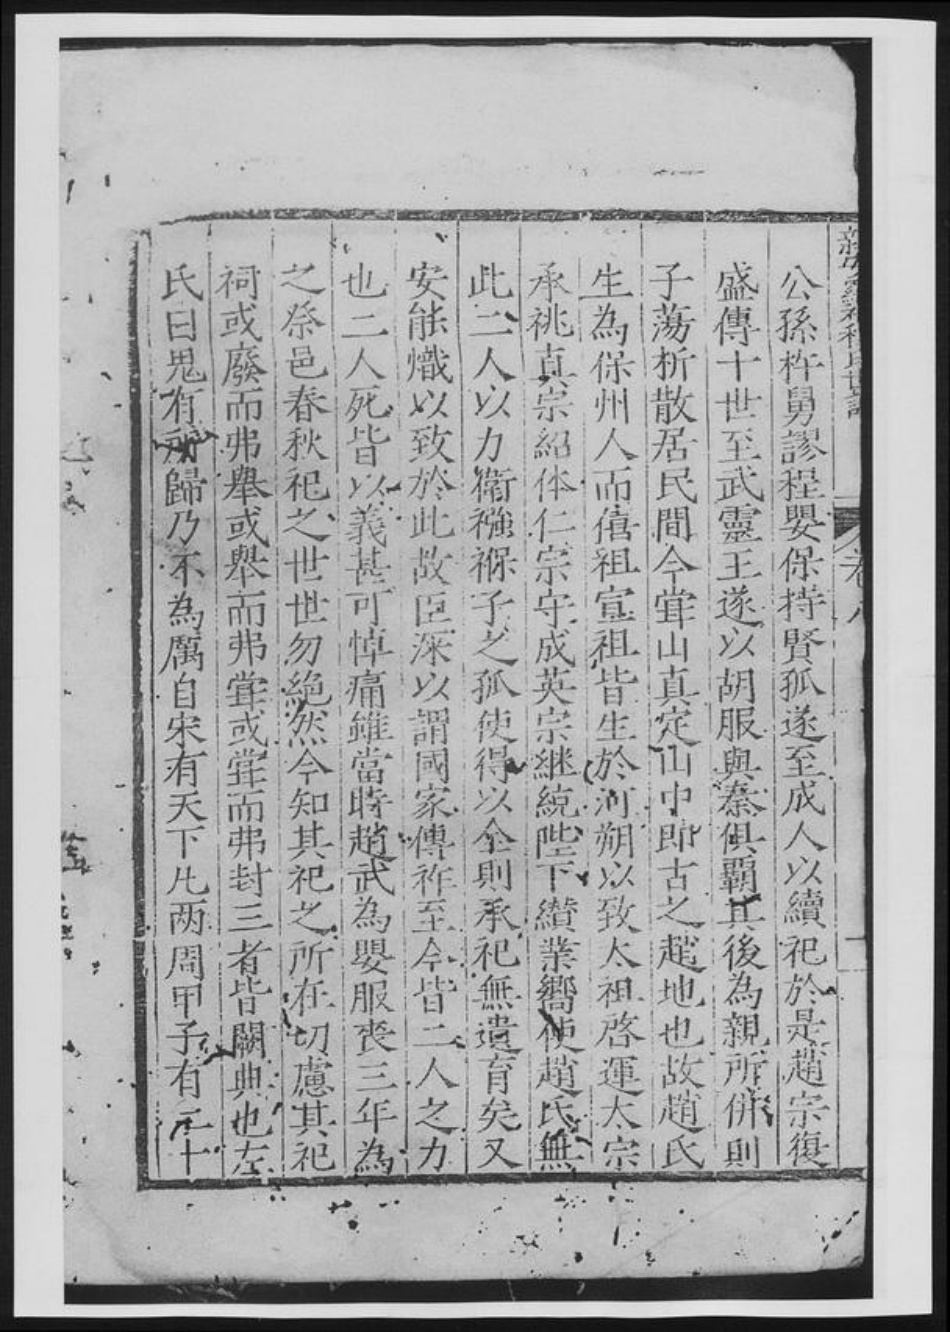 公孫杵臼謬程嬰保持賢孤遂至成人以續祀於是趙宗復
盛傳十世至武靈王遂以胡服與秦俱覇其後為親所併則
子蕩析散居民間今甞山真定山中即古之趙地也故趙氏
生為保州人而僖祖宣祖皆生於河朔以致太祖啓運太宗
承祧真宗紹体仁宗守成英宗継統陛下纉業嚮使趙氏無
此二人以力衛襁褓子之孤使得以全則承祀無遺育矣又
安能熾以致於此故臣深以謂國家傳祚至今皆二人之力
也二人死皆以義甚可悼痛雖當時趙武為嬰服喪三年為
之祭邑春秋祀之世世勿絶然今知其祀之所在切慮其祀
祠或廢而弗舉或舉而弗甞或甞而弗封三者皆闕典也左
氏曰鬼有所歸乃不為厲自宋有天下凢两周甲子有二十
卷八